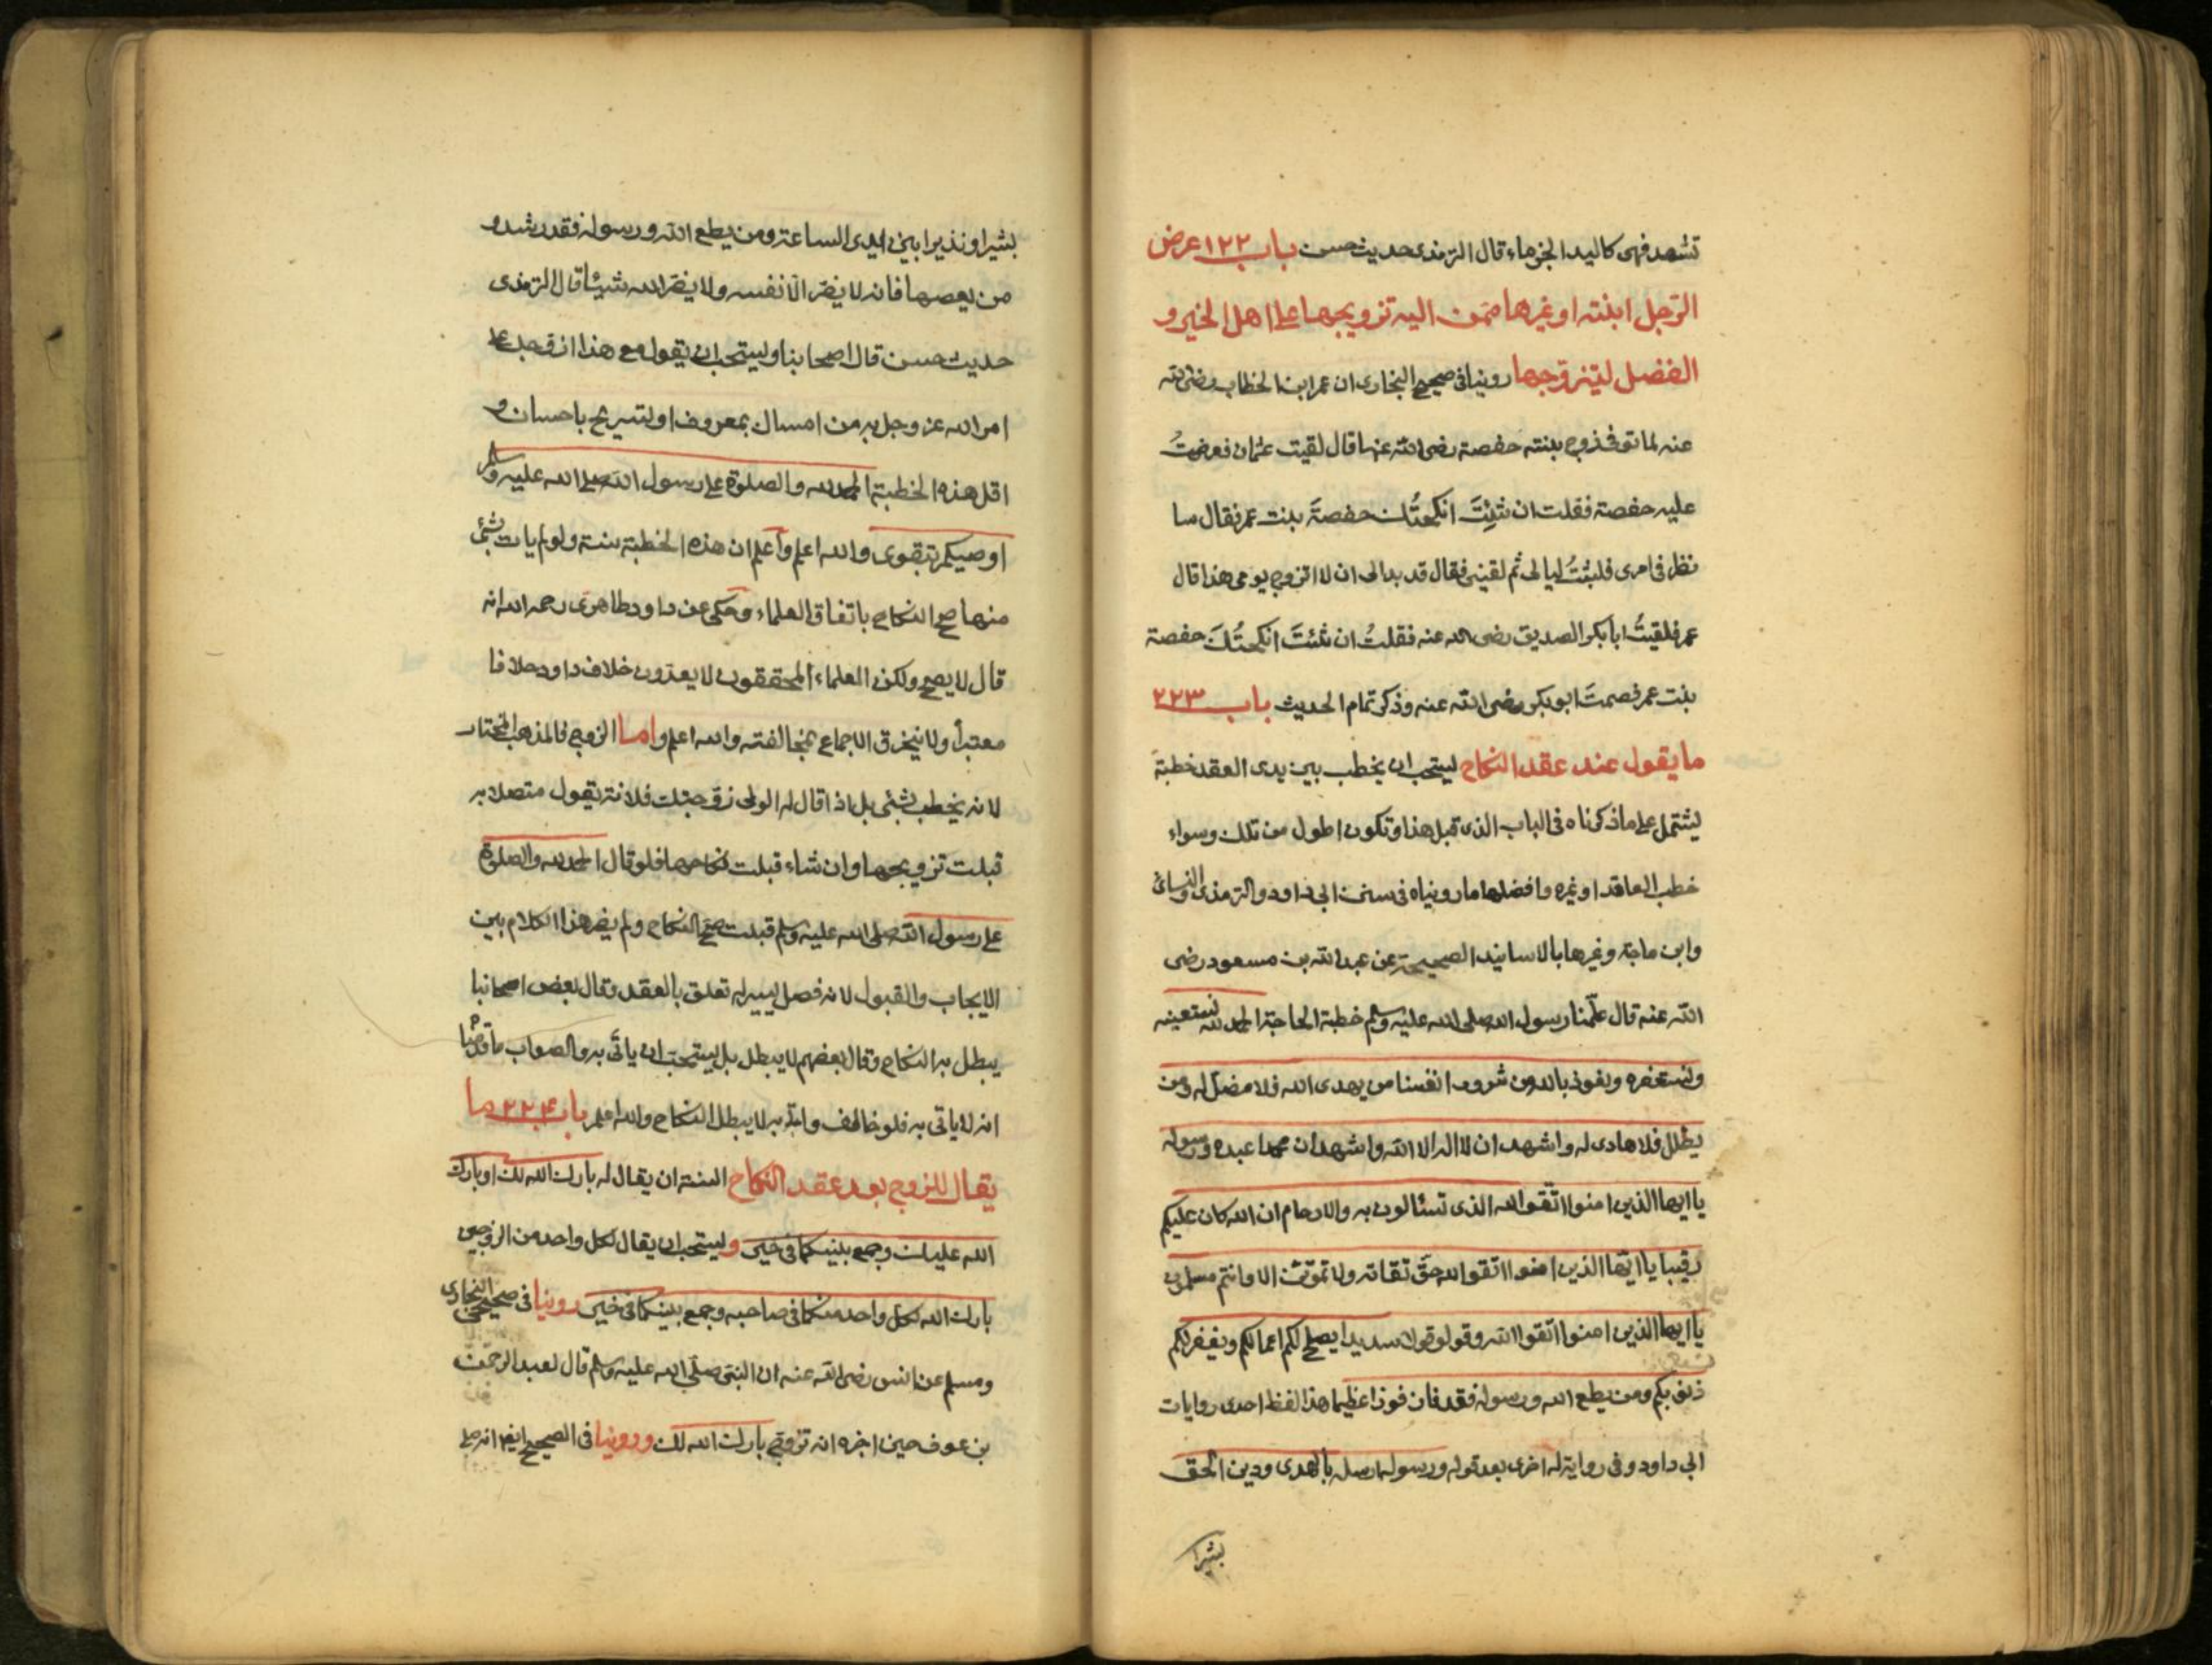 تشهد فهى كاليد الجزماء قال الترمذى حديث حسن باب ١٢٢ عرض
الرّجل ابنته او غيرها ممّن اليه تزويجها على اهل الخير و
الفضل ليتزوّجها روينا فى صحيح البخارى ان عمر ابن الخطاب رضى الله
عنه لما توفى زوج بنته حفصة رضى الله عنها قال لقيت عثمان فعرضتُ
عليه حفصة فقلت ان شئِتَ انكحتُك حفصةَ بنت عمر فقال سا
نظر فى امرى فلبثتُ ليالى ثم لقينى فقال قد بدالى ان لا اتزوج يومى هذا قال
عمر فلقيتُ ابابكر الصديق رضى الله عنه فقلتُ ان شئتَ انكحتُكَ حفصة
بنت عمر فصمتَ ابوبكر رضى الله عنه وذكر تمام الحديث باب ٢٢٣
ما يقول عند عقد النكاح يستحب ان يخطب بين يدى العقد خطبة
يشتمل على ماذكرناه فى الباب الذى قبل هذا وتكون اطول من تلك وسواء
خطب العاقد او غيره وافضلها ماروينا فى سنن ابى داود والترمذى والنسائى
وابن ماجة وغيرها بالاسانيد الصحيحة عن عبد الله بن مسعود رضى
الله عنه قال علّمنا رسول الله صلى الله عليه وسلم خطبة الحاجة الحمد لله نستعينه
ونستغفره ونعوذ بالله من شرور انفسنا من يهدى الله فلا مضلّ له ومن
يظلل فلا هادى له واشهد ان لا اله الا الله واشهد ان محمدا عبده ورسوله
يا ايها الذين امنوا اتّقوا الله الذى تسئالون به والارحام ان الله كان عليكم
رقيبا يا ايّها الذين امنوا اتقوا الله حقّ تقاته ولا تموتنّ الا وانتم مسلمون
يا ايها الذين امنوا اتّقوا الله وقولو قولا سديدا يصلح لكم اعمالكم ويغفر لكم
ذنوبكم ومن يطع الله ورسوله فقد فاز فوزا عظيما هذا لفظ احدى روايات
ابى داود وفى رواية له اخرى بعد قوله ورسوله ارسله بالهدى ودين الحق
بشيرا
بشيرا ونذيرا بين ايدى الساعة ومن يطع الله ورسوله فقد رشد و
من يعصهما فانه لا يضرّ الّا نفسه ولا يضرّ الله شيئا قال الترمذى
حديث حسن قال اصحابنا ويستحب ان يقول مع هذا ازوجك على
امر الله عز وجل به من امساك بمعروف او تسريح باحسان و
اقل هذه الخطبة الحمد لله والصلوة على رسول الله صلى الله عليه وسلم
اوصيكم بتقوى والله اعلم واعلم ان هذه الخطبة سنة ولو لم يات بشئ
منها صح النكاح باتفاق العلماء وحكى عن داود ظاهرى رحمه الله انه
قال لا يصح ولكن العلماء المحققون لا يعدّون خلاف داود خلافا
معتبرا ولا ينخرق الاجماع بمخالفته والله اعلم واما الزوج فالمذهب المختار
لانه يخطب بشئى بل اذا قال له الولى زوجتك فلانة يقول متصلا به
قبلت تزويجها وان شاء قبلت نكاحها فلو قال الحمد لله والصلوة
على رسول الله صلى الله عليه وسلم قبلت صحّ النكاح ولم يضر هذا الكلام بين
الايجاب والقبول لانه فصل يسير له تعلق بالعقد وقال بعض اصحابنا
يبطل به النكاح وقال بعضهم لا يبطل بل يستحب ان يأتى به والصواب ما قدّمنا
انه لا ياتى به فلو خالف واتى به لا يبطل النكاح والله اعلم باب ٢٢٤ ما
يقال للزوج بعد عقد النكاح السنة ان يقال له بارك الله لك او بارك
الله عليك وجمع بينكما فى خير ويستحب ان يقال لكل واحد من الزوجين
بارك الله لكل واحد منكما فى صاحبه وجمع بينكما فى خير روينا فى صحيحى البخارى
ومسلم عن انس رضى الله عنه ان النبى صلّى الله عليه وسلم قال لعبد الرحمن
بن عوف حين اخبره انه تزوّج بارك الله لك وروينا فى الصحيح ايضا انه صلى